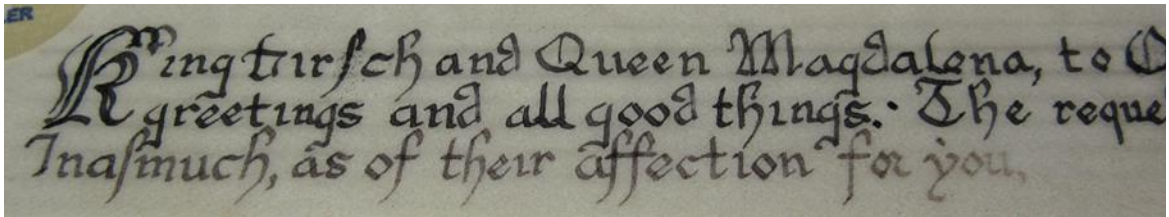 ER
King Hirſch and Queen Magdalena, to
greetings and all good things. The reque
Inaſmuch, as of their affection for you,